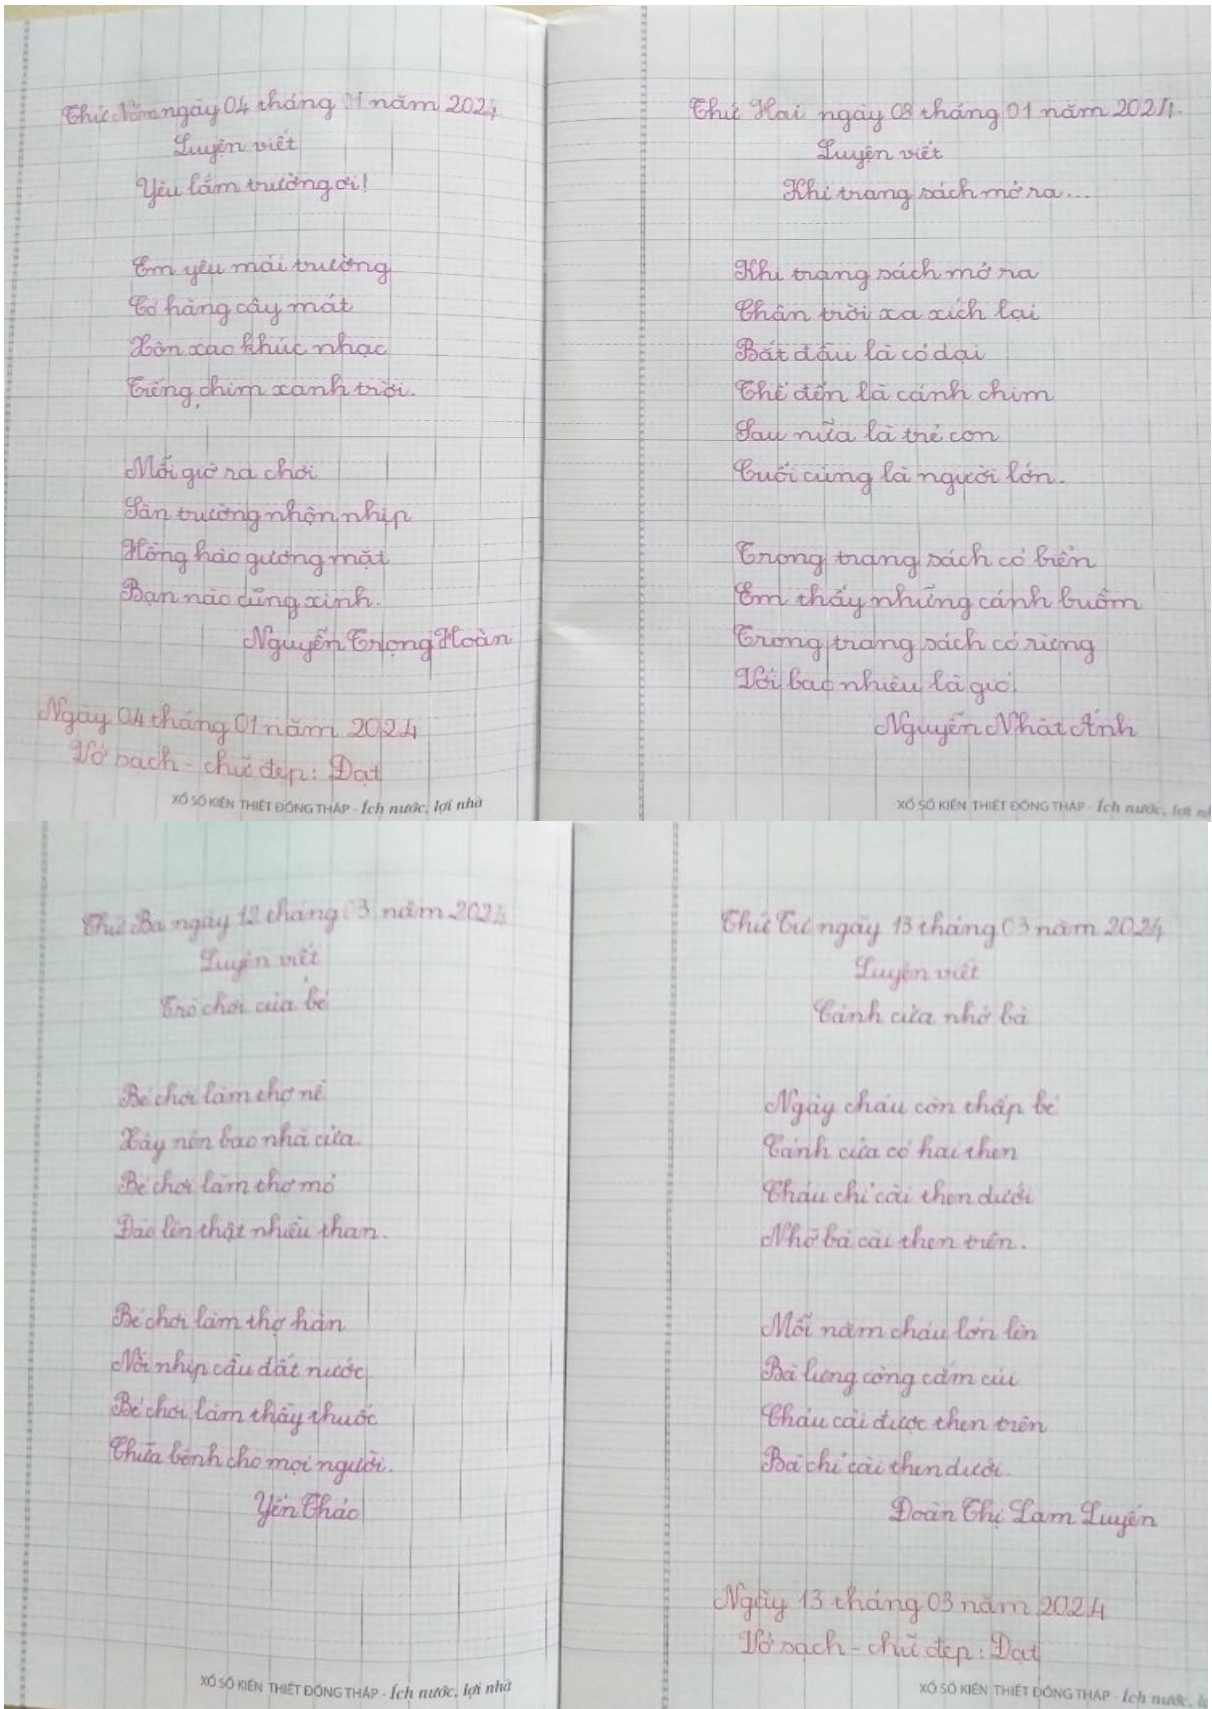 Thứ Năm ngày 04 tháng 01 năm 2024
Luyện viết
Yêu lắm trường ơi!
Em yêu mái trường
Có hàng cây mát
Xôn xao khúc nhạc
Tiếng chim xanh trời.
Mỗi giờ ra chơi
Sân trường nhộn nhịp
Hồng hào gương mặt
Bạn nào cũng xinh.
Nguyễn Trọng Hoàn
Ngày 04 tháng 01 năm 2024
Vở sạch - chữ đẹp: Đạt
XỔ SỐ KIẾN THIẾT ĐỒNG THÁP - Ích nước, lợi nhà
Thứ Hai ngày 08 tháng 01 năm 2024
Luyện viết
Khi trang sách mở ra...
Khi trang sách mở ra
Chân trời xa xích lại
Bắt đầu là cỏ dại
Thế đến là cánh chim
Sau nữa là trẻ con
Cuối cùng là người lớn.
Trong trang sách có biển
Em thấy những cánh buồm
Trong trang sách có riêng
Với bao nhiêu là gió
Nguyễn Nhật Ánh
XỔ SỐ KIẾN THIẾT ĐỒNG THÁP - Ích nước, lợi
Thứ Ba ngày 12 tháng 03 năm 2024
Luyện viết
Trò chơi của bé
Bé chơi làm thợ nề
Xây nên bao nhà cửa.
Bé chơi làm thợ mỏ
Đào lên thật nhiều than.
Bé chơi làm thợ hàn
Nối nhịp cầu đất nước
Bé chơi làm thầy thuốc
Chữa bệnh cho mọi người.
Yến Thảo
XỔ SỐ KIẾN THIẾT ĐỒNG THÁP - Ích nước, lợi nhà
Thứ Tư ngày 13 tháng 03 năm 2024
Luyện viết
Cánh cửa nhớ bà
Ngày cháu còn thấp bé
Cánh cửa có hai then
Cháu chỉ cài then dưới
Nhờ bà cài then trên.
Mỗi năm cháu lớn lên
Bà lưng còng cắm cúi
Cháu cài được then trên
Bà chỉ cài then dưới.
Đoàn Thị Lam Luyến
Ngày 13 tháng 03 năm 2024
Vở sạch - chữ đẹp: Đạt
XỔ SỐ KIẾN THIẾT ĐỒNG THÁP - Ích nước,